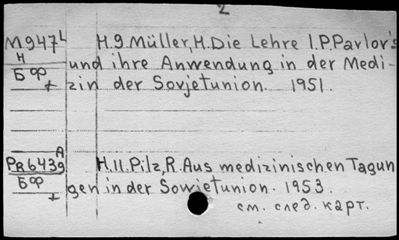 2
M947L H.9.Müller, H. Die Lehre I.P. Pavlov's
H und ihre Anwendung in der Medi-
БФ zin der Sovjetunion. 1951.
A
PR6439 H.11. Pilz, R. Aus medizinischen Tagun
БФ gen in der Sowjetunion. 1953.
см. след. карт.